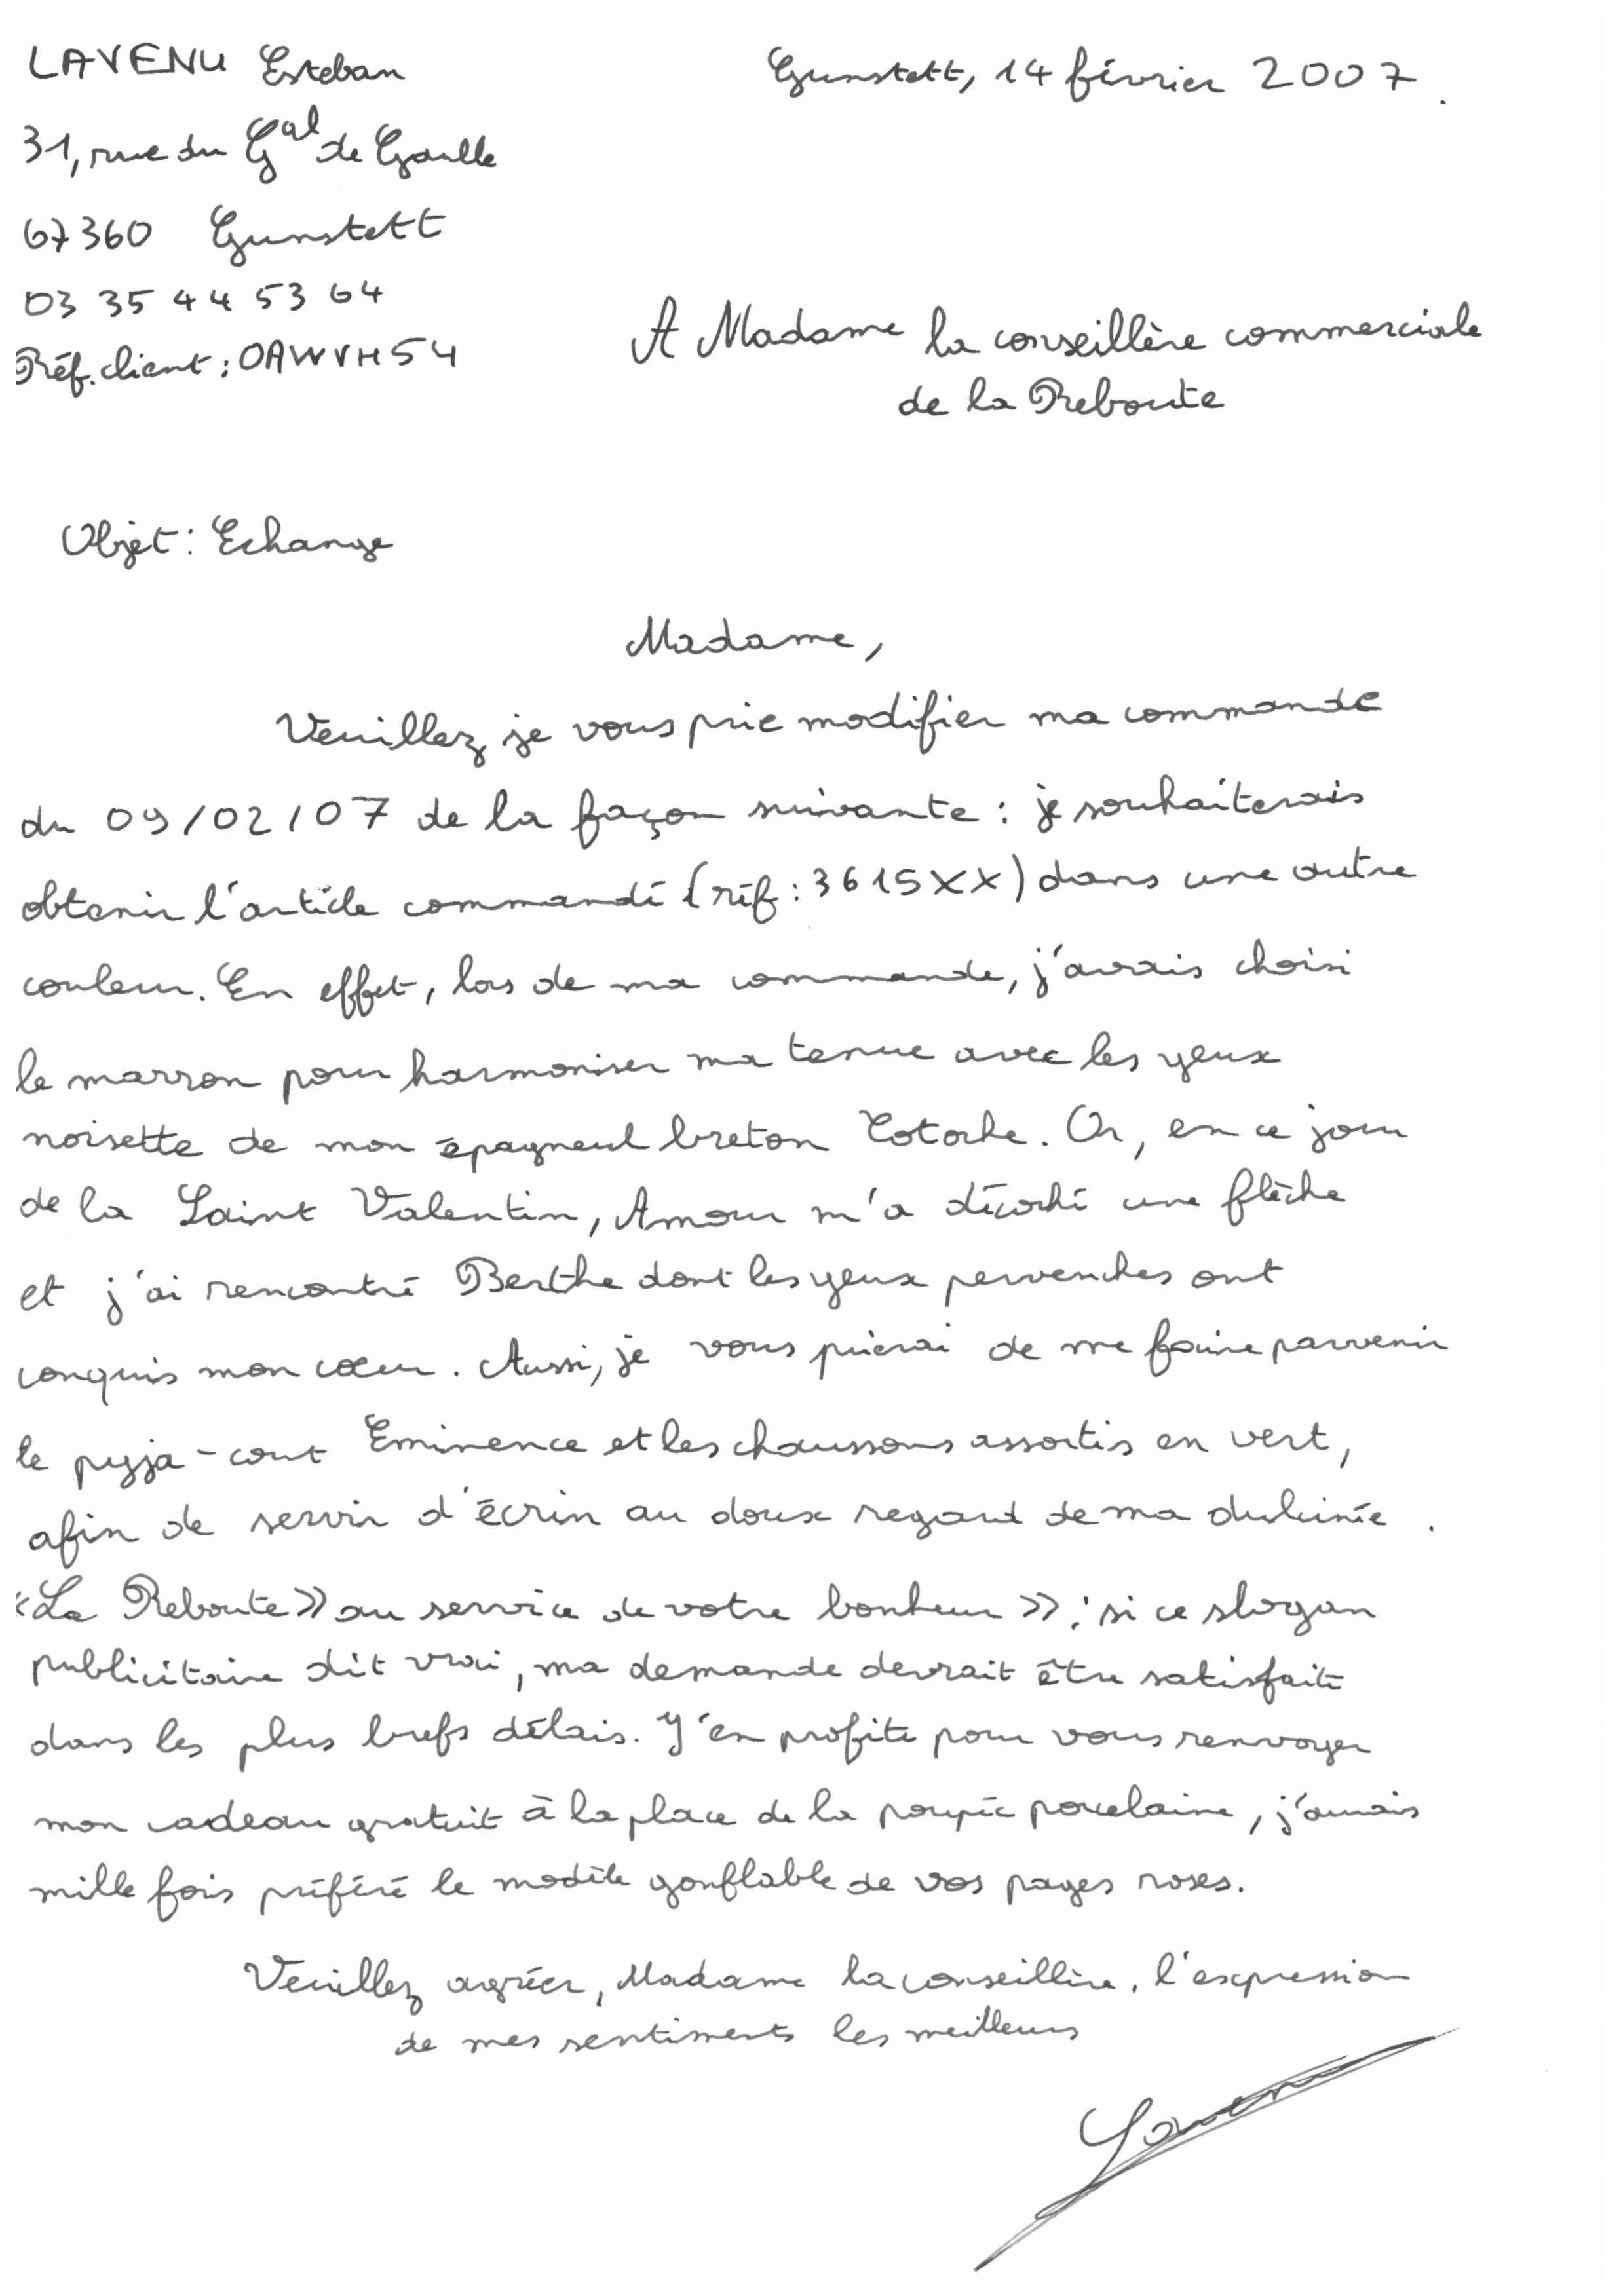 LAVENU Esteban
Gunstett, 14 février 2007.
31, rue du Gal de Gaulle
67360 Gunstett
03 35 44 53 64
Réf. client : OAWVH54
A Madame la conseillère commerciale
de la Reboute
Objet : Echange
Madame,
Veuillez je vous prie modifier ma commande
du 09/02/07 de la façon suivante : je souhaiterais
obtenir l'article commandé (réf : 3615XX) dans une autre
couleur. En effet, lors de ma commande, j'avais choisi
le marron pour harmoniser ma tenue avec les yeux
noisette de mon épagneul breton Cotoche. Or, en ce jour
de la Saint Valentin, Amour m'a décoché une flèche
et j'ai rencontré Berthe dont les yeux pervenches ont
conquis mon coeur. Aussi, je vous prierai de me faire parvenir
le pyja-court Eminence et les chaussons assortis en vert,
afin de servir d'écrin au doux regard de ma dulcinée.
«La Reboute» au service de votre bonheur » ; si ce slogan
publicitaire dit vrai, ma demande devrait être satisfaite
dans les plus brefs délais. J'en profite pour vous renvoyer
mon cadeau gratuit à la place de la poupée porcelaine, j'aurais
mille fois préféré le modèle gonflable de vos pages roses.
Veuillez agréer, Madame la conseillère, l'expression
de mes sentiments les meilleurs
Lavenu